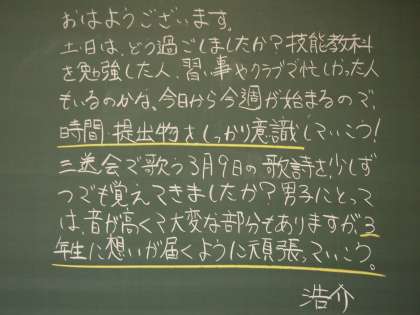 おはようございます。
土・日は、どう過ごしましたか？技能教科
を勉強した人、習い事やクラブで忙しかった人
もいるのかな。今日から今週が始まるので、
時間・提出物をしっかり意識していこう！
三送会で歌う3月9日の歌詩を少しず
つでも覚えてきましたか？男子にとって
は、音が高くて大変な部分もありますが、3
年生に想いが届くように頑張っていこう。
浩介